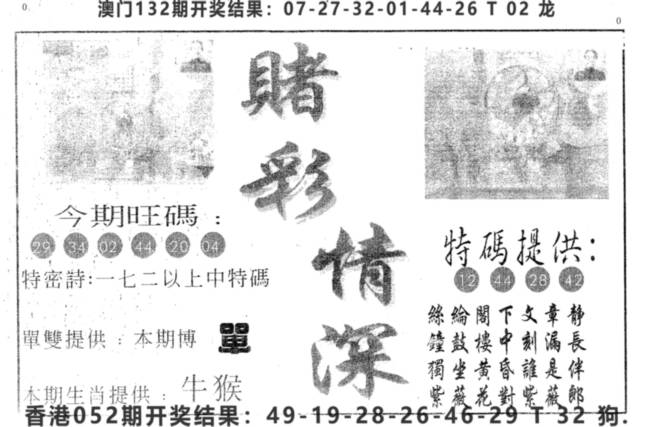 澳门132期开奖结果：07-27-32-01-44-26 T 02 龙
賭彩情深
今期旺碼：
29 34 02 44 20 04
特密詩:一七二以上中特碼
單雙提供：本期博 單
本期生肖提供：牛猴
特碼提供:
12 44 28 42
絲綸閣下文章靜
鐘鼓樓中刻漏長
獨坐黃昏誰是伴
紫薇花對紫薇郎
香港052期开奖结果：49-19-28-26-46-29 T 32 狗.